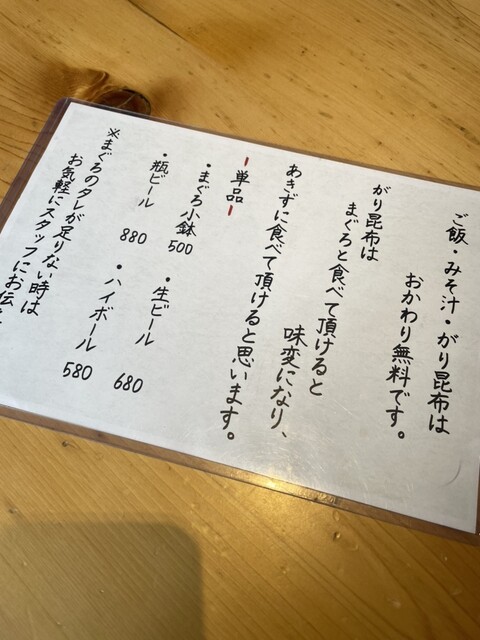 ご飯・みそ汁・がり昆布は
おかわり無料です。
がり昆布は
まぐろと食べて頂けると
味変になり、
あきずに食べて頂けると思います。
ー単品ー
・まぐろ小鉢 500
・生ビール 680
・瓶ビール 880
・ハイボール 580
※まぐろのタレが足りない時は
お気軽にスタッフにお伝え